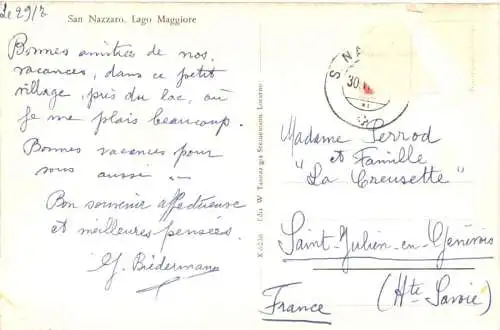 Le 29/7
San Nazzaro. Lago Maggiore
Bonnes amitiés de nos
vacances, dans ce petit
village, près du lac, où
je me plais beaucoup.
Bonnes vacances pour
vous aussi —
Bon souvenir affectueuse
et meilleures pensées.
G. Biedermann
S. NA
30.
Madame Perrod
et Famille
"La Creusette"
Saint-Julien-en-Genevois
(Hte Savoie)
France